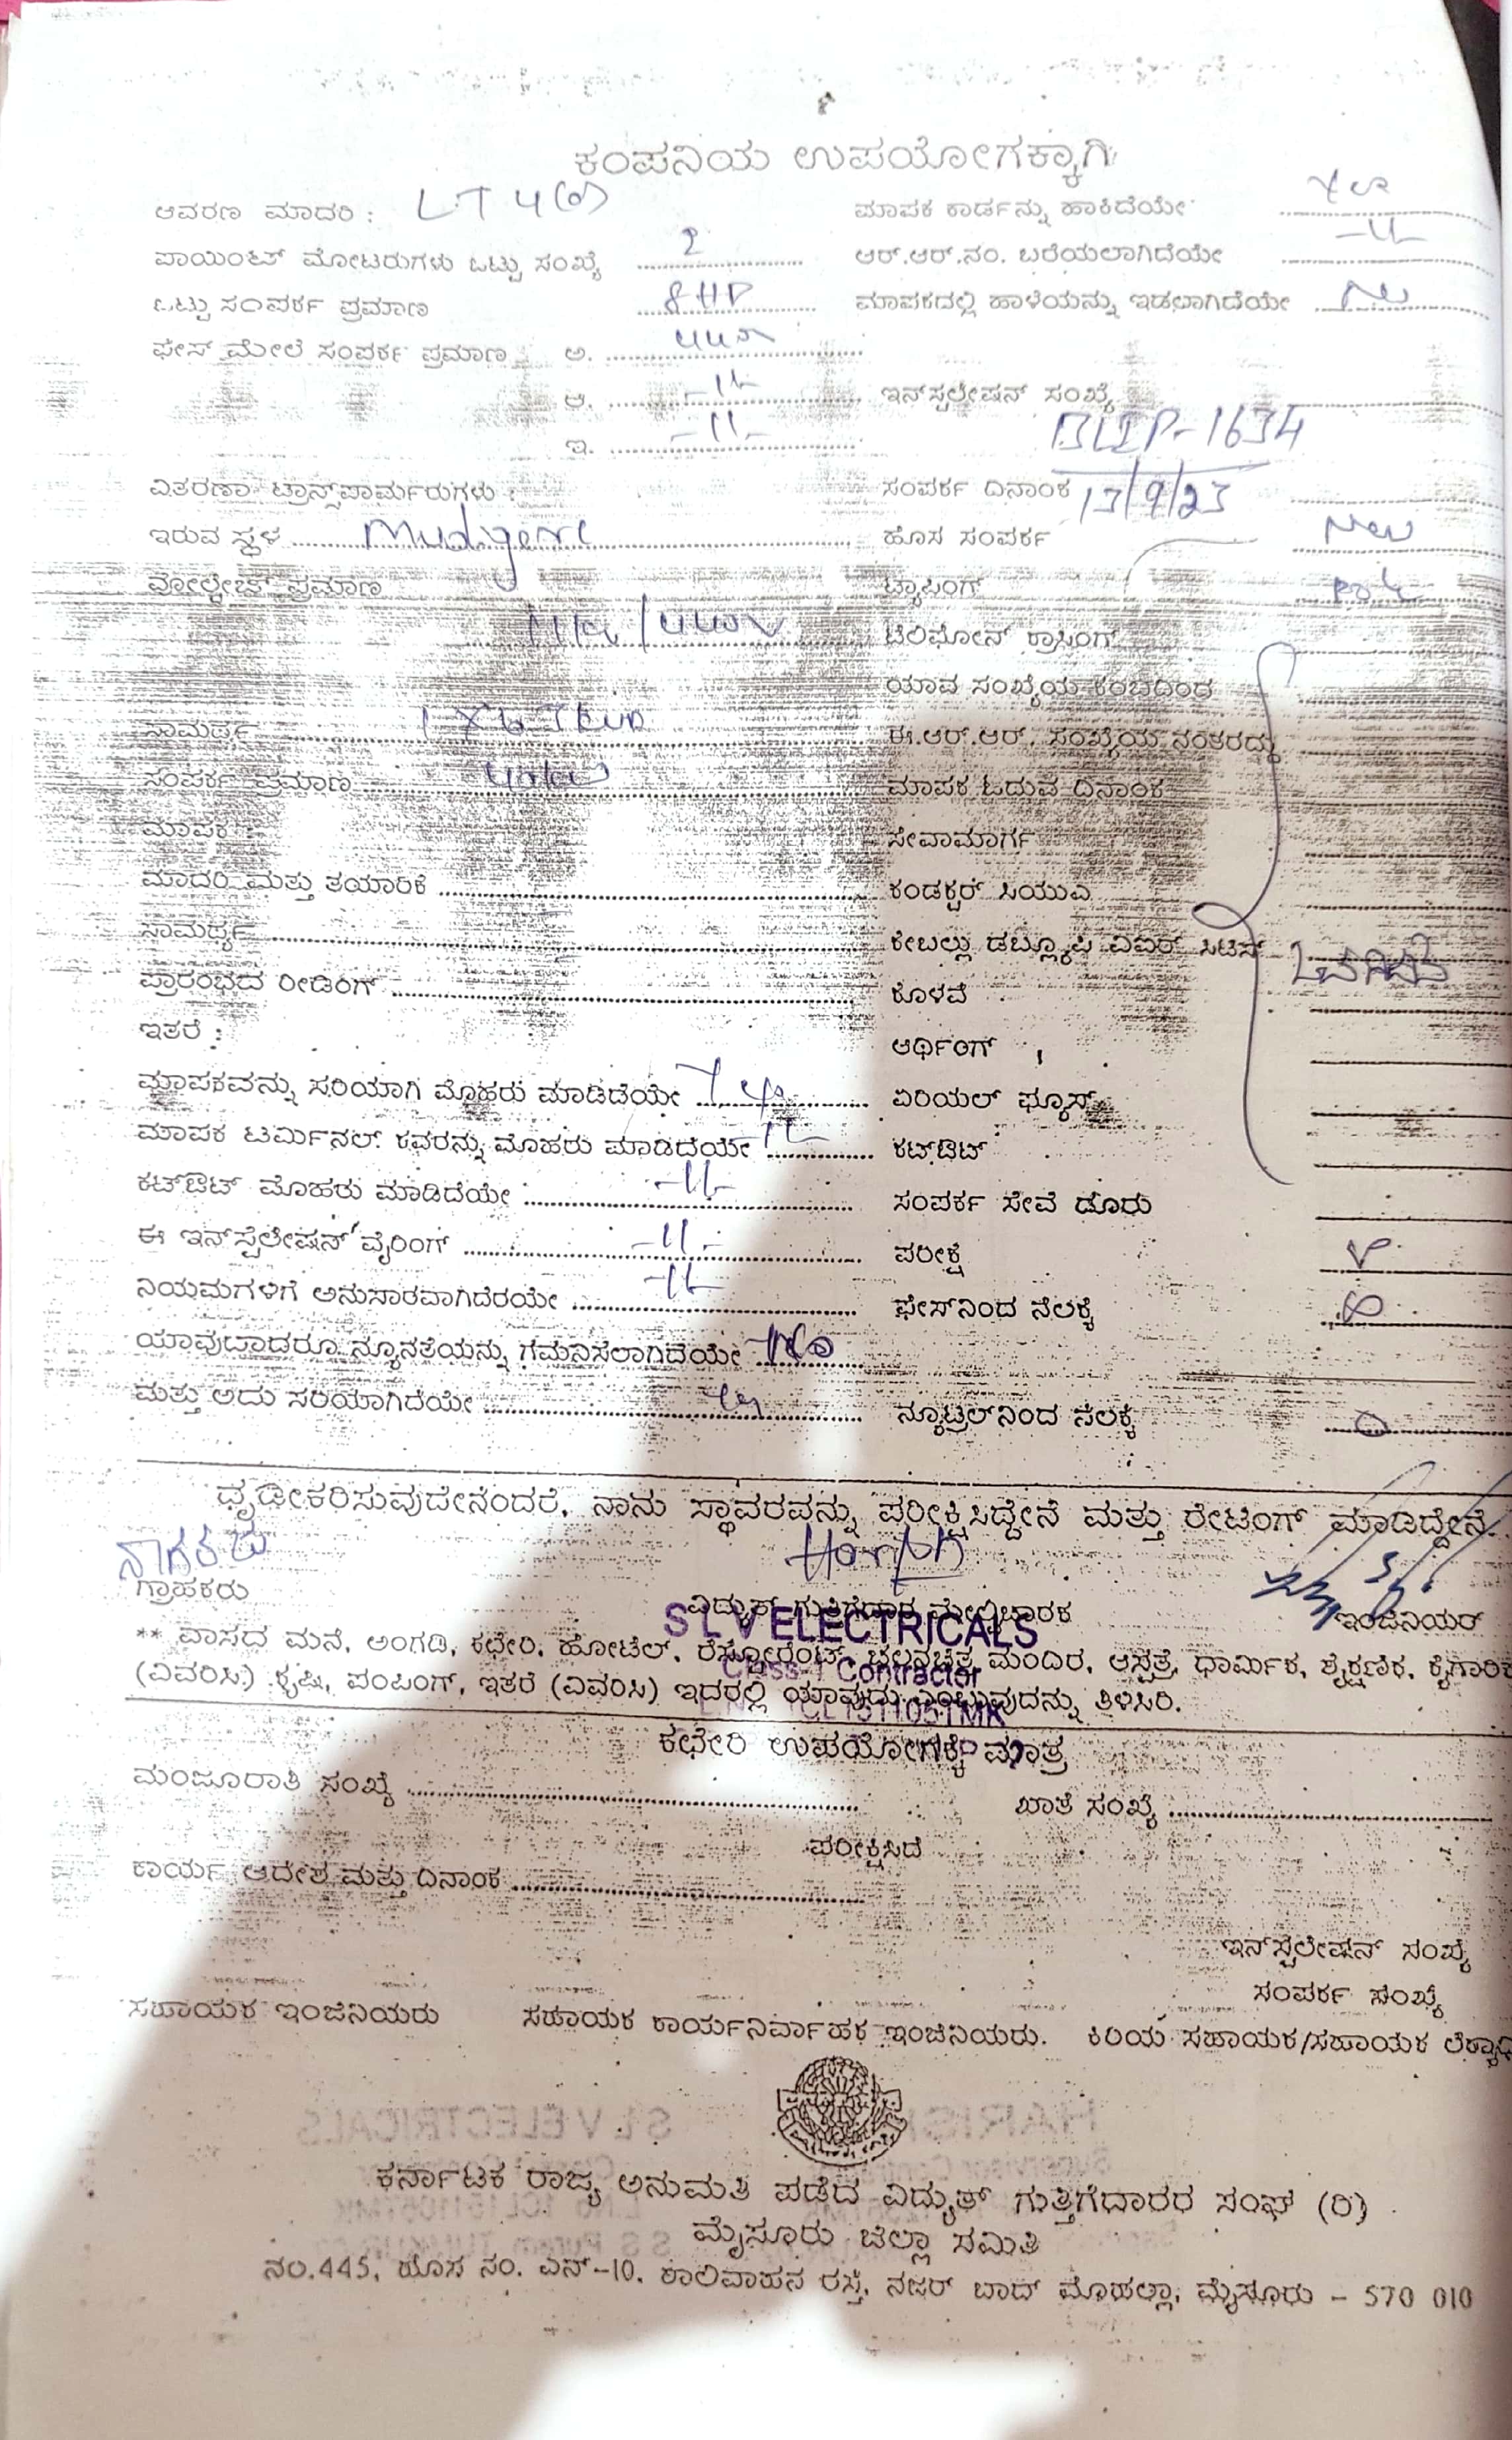 ಕಂಪನಿಯ ಉಪಯೋಗಕ್ಕಾಗಿ
ಆವರಣ ಮಾದರಿ : LT 4(a)
ಮಾಪಕ ಕಾರ್ಡನ್ನು ಹಾಕಿದೆಯೇ Yes
ಪಾಯಿಂಟ್ ಮೋಟರುಗಳು ಒಟ್ಟು ಸಂಖ್ಯೆ 2
ಆರ್.ಆರ್.ನಂ. ಬರೆಯಲಾಗಿದೆಯೇ -11-
ಒಟ್ಟು ಸಂಪರ್ಕ ಪ್ರಮಾಣ 8 HP
ಮಾಪಕದಲ್ಲಿ ಹಾಳೆಯನ್ನು ಇಡಲಾಗಿದೆಯೇ
ಫೇಸ್ ಮೇಲೆ ಸಂಪರ್ಕ ಪ್ರಮಾಣ ಅ.
ಆ. -11-
ಇನ್‌ಸ್ಟಲೇಷನ್ ಸಂಖ್ಯೆ
ಇ. -11-
BLIP-1634
ವಿತರಣಾ ಟ್ರಾನ್ಸ್‌ಫಾರ್ಮರುಗಳು :
ಸಂಪರ್ಕ ದಿನಾಂಕ 13/9/23
ಇರುವ ಸ್ಥಳ Mudigere
ಹೊಸ ಸಂಪರ್ಕ New
ವೋಲ್ಟೇಜ್ ಪ್ರಮಾಣ
ಟ್ಯಾಪಿಂಗ್
ಟೆಲಿಫೋನ್ ಕ್ರಾಸಿಂಗ್
ಯಾವ ಸಂಖ್ಯೆಯ ಕಂಬದಿಂದ
ಸಾಮರ್ಥ್ಯ
ಈ.ಆರ್.ಆರ್. ಸಂಖ್ಯೆಯ ನಂತರದ್ದು
ಸಂಪರ್ಕ ಪ್ರಮಾಣ
ಮಾಪಕ ಓದುವ ದಿನಾಂಕ
ಮಾಪಕ :
ಸೇವಾಮಾರ್ಗ
ಮಾದರಿ ಮತ್ತು ತಯಾರಿಕೆ
ಕಂಡಕ್ಟರ್ ಸಿಯುಎ
ಸಾಮರ್ಥ್ಯ
ಕೇಬಲ್ಲು ಡಬ್ಲ್ಯೂಪಿ ವಿಐಆರ್ ಸಿಟಿಸ್
ಪ್ರಾರಂಭದ ರೀಡಿಂಗ್
ಕೊಳವೆ
ಇತರೆ :
ಅರ್ಥಿಂಗ್
ಮಾಪಕವನ್ನು ಸರಿಯಾಗಿ ಮೊಹರು ಮಾಡಿದೆಯೇ Yes
ಏರಿಯಲ್ ಫ್ಯೂಸ್
ಮಾಪಕ ಟರ್ಮಿನಲ್ ಕವರನ್ನು ಮೊಹರು ಮಾಡಿದೆಯೇ -11-
ಕಟ್‌ಔಟ್
ಕಟ್‌ಔಟ್ ಮೊಹರು ಮಾಡಿದೆಯೇ -11-
ಸಂಪರ್ಕ ಸೇವೆ ದೂರು
ಈ ಇನ್‌ಸ್ಟಲೇಷನ್ ವೈರಿಂಗ್ -11-
ಪರೀಕ್ಷೆ
ನಿಯಮಗಳಿಗೆ ಅನುಸಾರವಾಗಿದೆರಯೇ -11-
ಫೇಸ್‌ನಿಂದ ನೆಲಕ್ಕೆ
ಯಾವುದಾದರೂ ನ್ಯೂನತೆಯನ್ನು ಗಮನಿಸಲಾಗಿದೆಯೇ No
ಮತ್ತು ಅದು ಸರಿಯಾಗಿದೆಯೇ
ನ್ಯೂಟ್ರಲ್‌ನಿಂದ ನೆಲಕ್ಕೆ 0
ಧೃಡೀಕರಿಸುವುದೇನೆಂದರೆ, ನಾನು ಸ್ಥಾವರವನ್ನು ಪರೀಕ್ಷಿಸಿದ್ದೇನೆ ಮತ್ತು ರೇಟಿಂಗ್ ಮಾಡಿದ್ದೇನೆ.
ನಾಗರಾಜು
ಗ್ರಾಹಕರು
ವಿದ್ಯುತ್ ಗುತ್ತಿಗೆದಾರ ಮೇಲ್ವಿಚಾರಕ
ಇಂಜಿನಿಯರ್
S L V ELECTRICALS
Class-1 Contractor
** ವಾಸದ ಮನೆ, ಅಂಗಡಿ, ಕಛೇರಿ, ಹೋಟೆಲ್, ರೆಸ್ಟೋರೆಂಟ್, ಚಲನಚಿತ್ರ ಮಂದಿರ, ಆಸ್ಪತ್ರೆ, ಧಾರ್ಮಿಕ, ಶೈಕ್ಷಣಿಕ, ಕೈಗಾರಿಕ
(ವಿವರಿಸಿ) ಕೃಷಿ, ಪಂಪಿಂಗ್, ಇತರೆ (ವಿವರಿಸಿ) ಇದರಲ್ಲಿ ಯಾವುದು ಎಂಬುವುದನ್ನು ತಿಳಿಸಿರಿ.
ಕಛೇರಿ ಉಪಯೋಗಕ್ಕೆ ಮಾತ್ರ
ಮಂಜೂರಾತಿ ಸಂಖ್ಯೆ
ಖಾತೆ ಸಂಖ್ಯೆ
ಪರೀಕ್ಷಿಸಿದೆ
ಕಾರ್ಯ ಆದೇಶ ಮತ್ತು ದಿನಾಂಕ
ಇನ್‌ಸ್ಟಲೇಷನ್ ಸಂಖ್ಯೆ
ಸಂಪರ್ಕ ಸಂಖ್ಯೆ
ಸಹಾಯಕ ಇಂಜಿನಿಯರು ಸಹಾಯಕ ಕಾರ್ಯನಿರ್ವಾಹಕ ಇಂಜಿನಿಯರು. ಕಿರಿಯ ಸಹಾಯಕ/ಸಹಾಯಕ
ಕರ್ನಾಟಕ ರಾಜ್ಯ ಅನುಮತಿ ಪಡೆದ ವಿದ್ಯುತ್ ಗುತ್ತಿಗೆದಾರರ ಸಂಘ (ರಿ)
ಮೈಸೂರು ಜಿಲ್ಲಾ ಸಮಿತಿ
ನಂ.445, ಹೊಸ ನಂ. ಎನ್-10, ಶಾಲಿವಾಹನ ರಸ್ತೆ, ನಜರ್ ಬಾದ್ ಮೊಹಲ್ಲಾ, ಮೈಸೂರು - 570 010